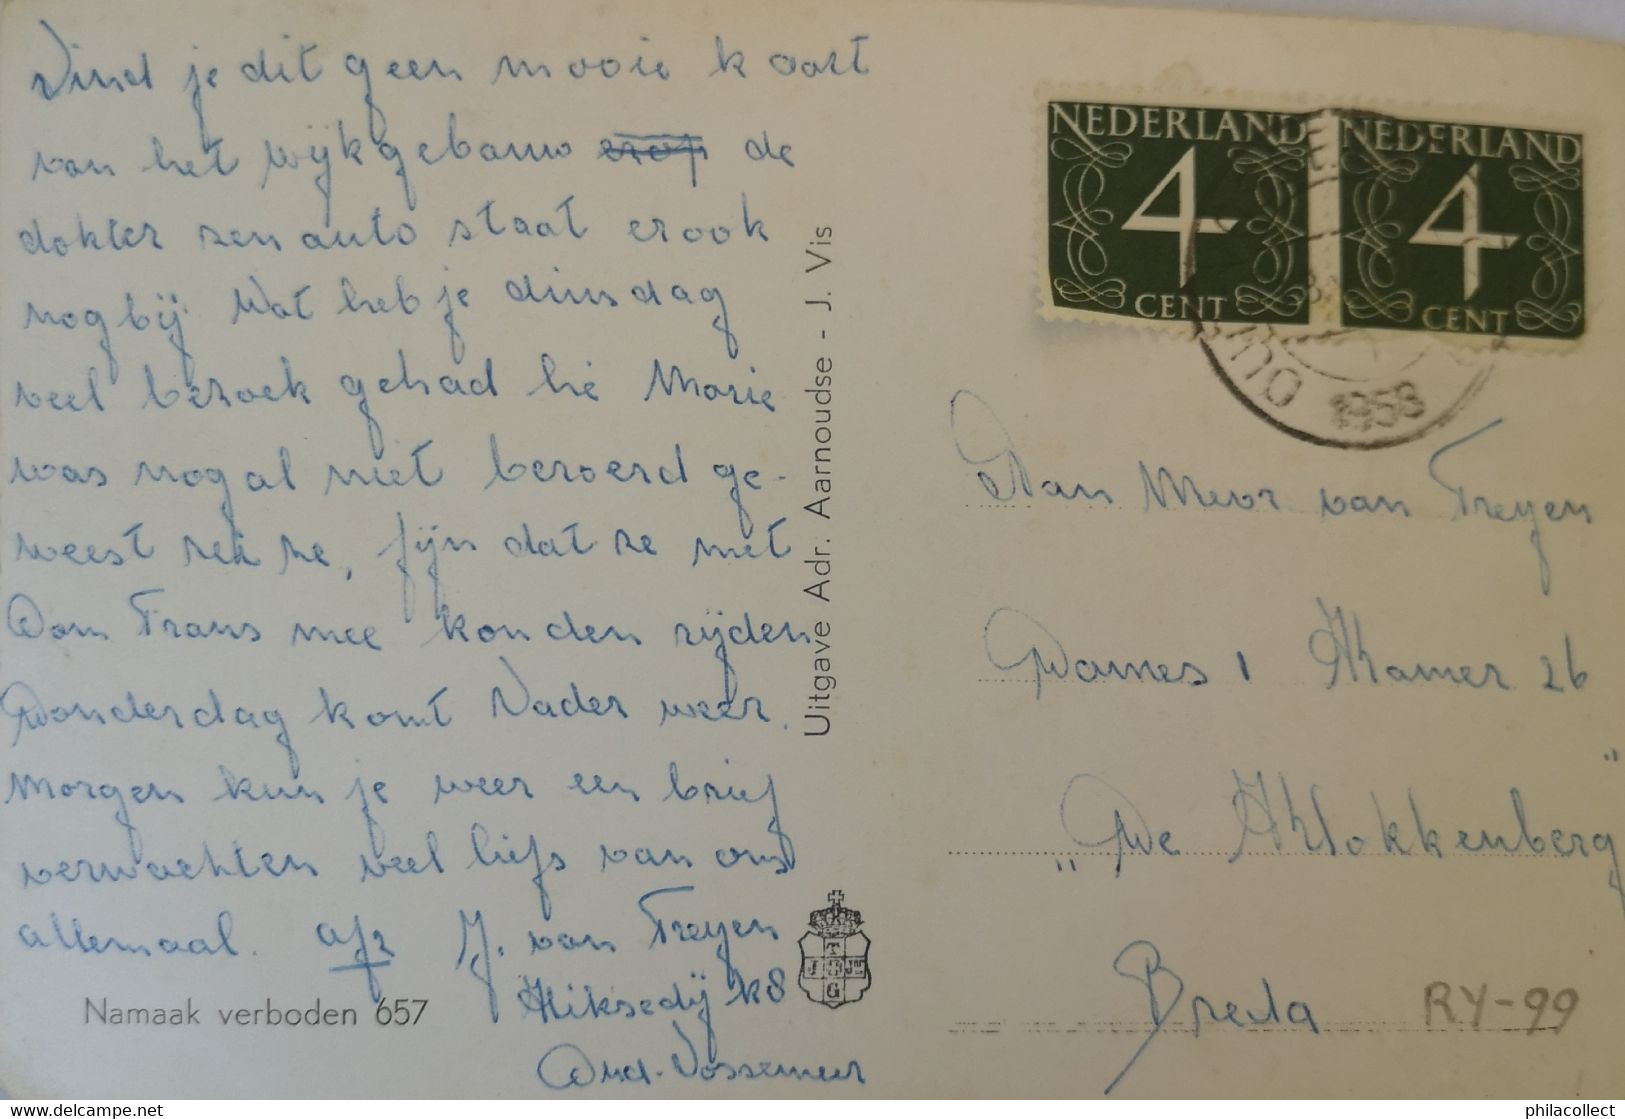 Vind je dit geen mooie kaart
van het wijkgebouw erop de
dokter zen auto staat erook
nog bij Wat heb je dinsdag
veel bezoek gehad hé Marie
was nogal niet beroerd ge-
weest zei ze, fijn dat ze met
Oom Frans mee konden rijden
Donderdag komt Vader weer.
Morgen kun je weer een brief
verwachten veel liefs van ons
allemaal. afz J. van Treyen
Hiksedij k8
Oud-Vossemeer
Namaak verboden 657
Uitgave Adr. Aarnoudse - J. Vis
NEDERLAND
4
CENT
NEDERLAND
4
CENT
1958
Aan Mevr van Treyen
Dames 1 Kamer 26
"De Klokkenberg"
Breda
RY-99
http://www.delcampe.net
philacollect